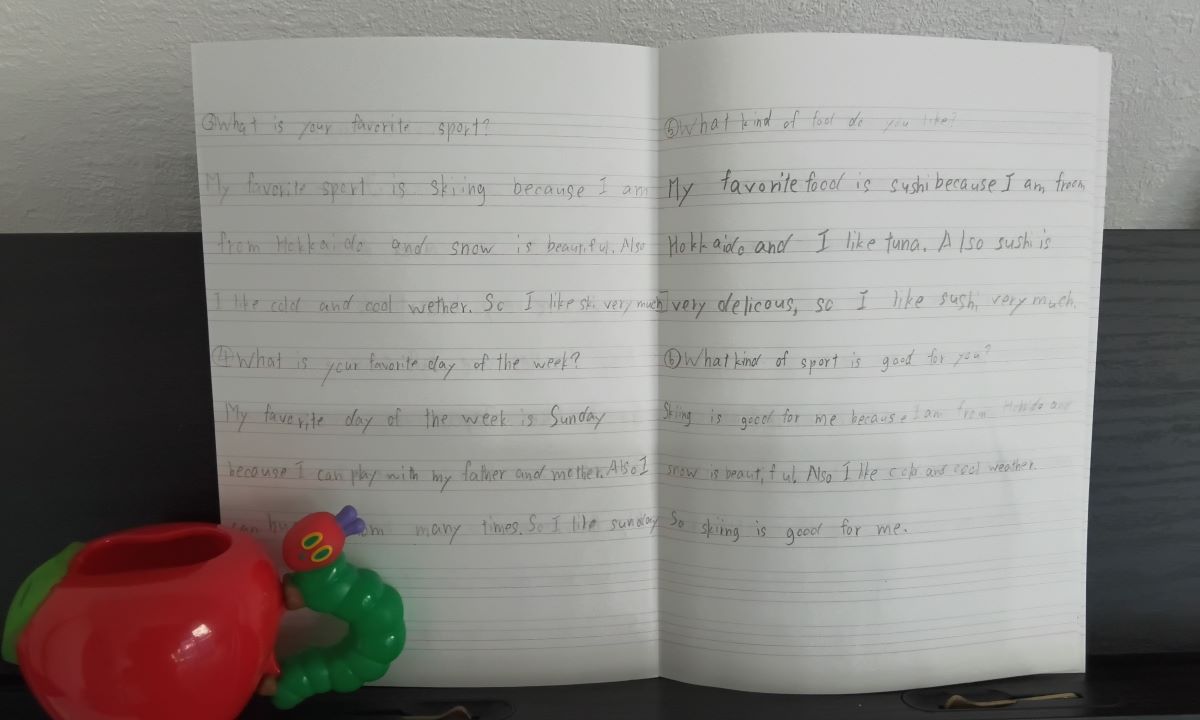 ③What is your favorite sport?
My favorite sport is skiing because I am
from Hokkaido and snow is beautiful. Also
I like cold and cool wether. So I like ski very much
④What is your favorite day of the week?
My favorite day of the week is Sunday
because I can play with my father and mother. Also I
can many times. So I like sunday
⑤What kind of food do you like?
My favorite food is sushi because I am from
Hokkaido and I like tuna. Also sushi is
very delicous, so I like sushi very much.
⑥What kind of sport is good for you?
Skiing is good for me because I am from and
snow is beautiful. Also I like and cool weather.
So skiing is good for me.